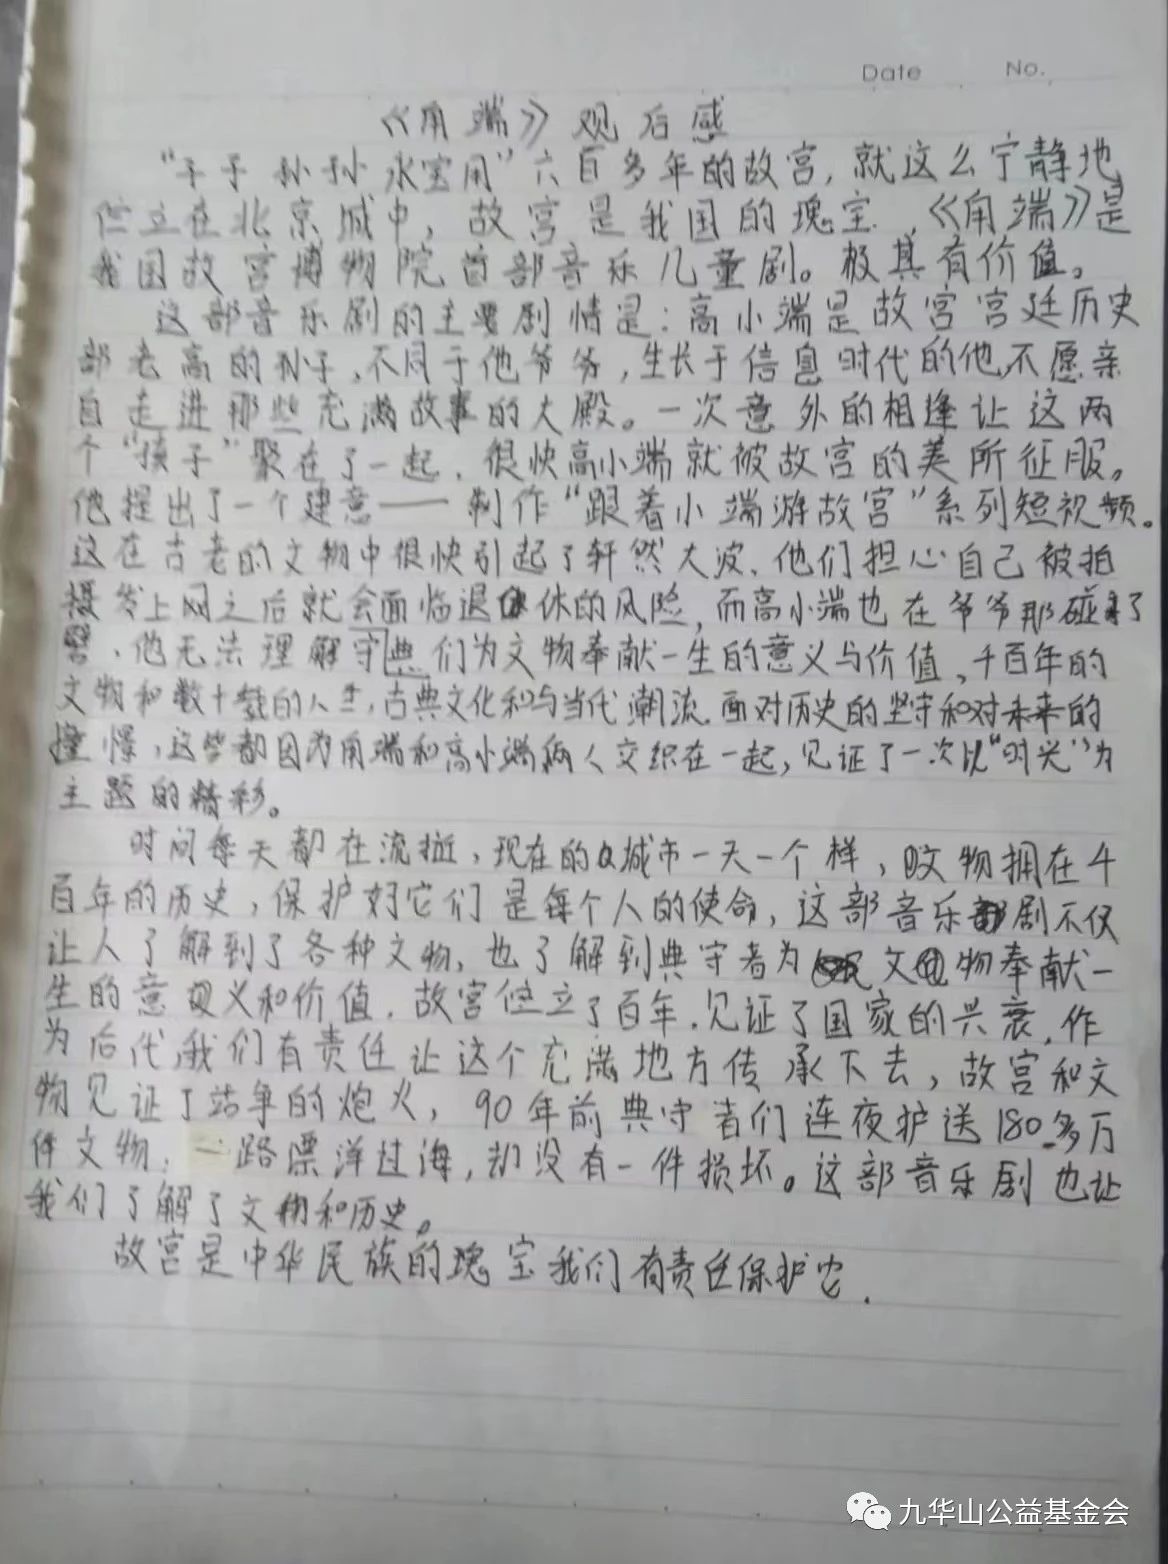 Date No.
《角端》观后感
“子子孙孙永宝用”六百多年的故宫，就这么宁静地
伫立在北京城中，故宫是我国的瑰宝，《角端》是
我国故宫博物院首部音乐儿童剧。极其有价值。
这部音乐剧的主要剧情是：高小端是故宫宫廷历史
部老高的孙子，不同于他爷爷，生长于信息时代的他，不愿亲
自走进那些充满故事的大殿。一次意外的相逢让这两
个“孩子”聚在了一起，很快高小端就被故宫的美所征服。
他提出了一个建意——制作“跟着小端游故宫”系列短视频。
这在古老的文物中很快引起了轩然大波，他们担心自己被拍
摄发上网之后就会面临退休的风险，而高小端也在爷爷那碰了
壁，他无法理解守典们为文物奉献一生的意义与价值，千百年的
文物和数十载的人生，古典文化和与当代潮流，面对历史的坚守和对未来的
憧憬，这些都因为角端和高小端两人交织在一起，见证了一次以“时光”为
主题的精彩。
时间每天都在流逝，现在的城市一天一个样，文物拥在千
百年的历史，保护好它们是每个人的使命，这部音乐剧不仅
让人了解到了各种文物，也了解到典守者为文物奉献一
生的意义和价值，故宫伫立了百年，见证了国家的兴衰，作
为后代，我们有责任让这个充满地方传承下去，故宫和文
物见证了战争的炮火，90年前典守者们连夜护送180多万
件文物，一路漂洋过海，却没有一件损坏。这部音乐剧也让
我们了解了文物和历史。
故宫是中华民族的瑰宝我们有责任保护它．
九华山公益基金会